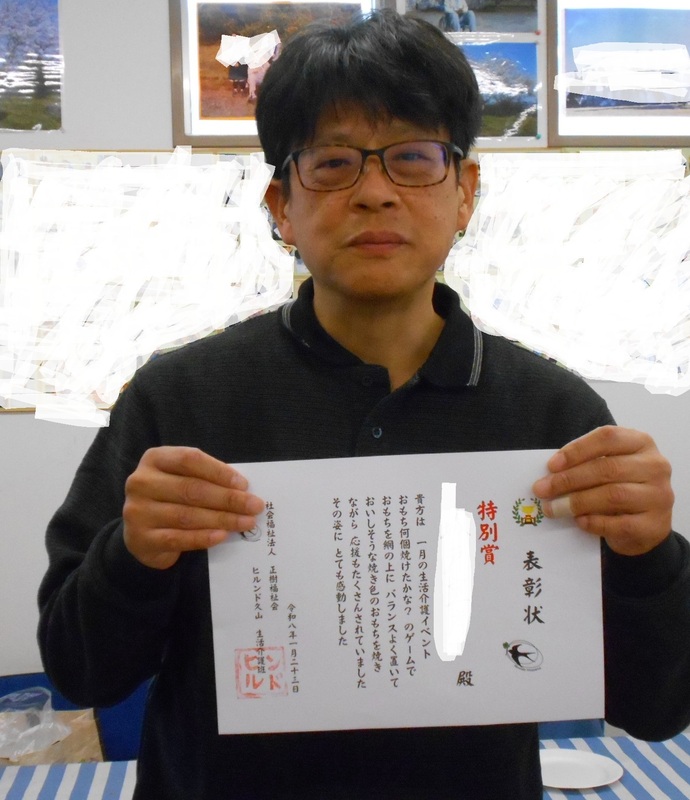 表彰状
特別賞
殿
貴方は 一月の生活介護イベント
おもち何個焼けたかな？のゲームで
おもちを網の上に バランスよく置いて
おいしそうな焼き色のおもちを焼き
ながら 応援もたくさんされていました
その姿に とても感動しました
令和八年一月二十三日
社会福祉法人 正樹福祉会
ヒルンド久山 生活介護課
ヒルンド